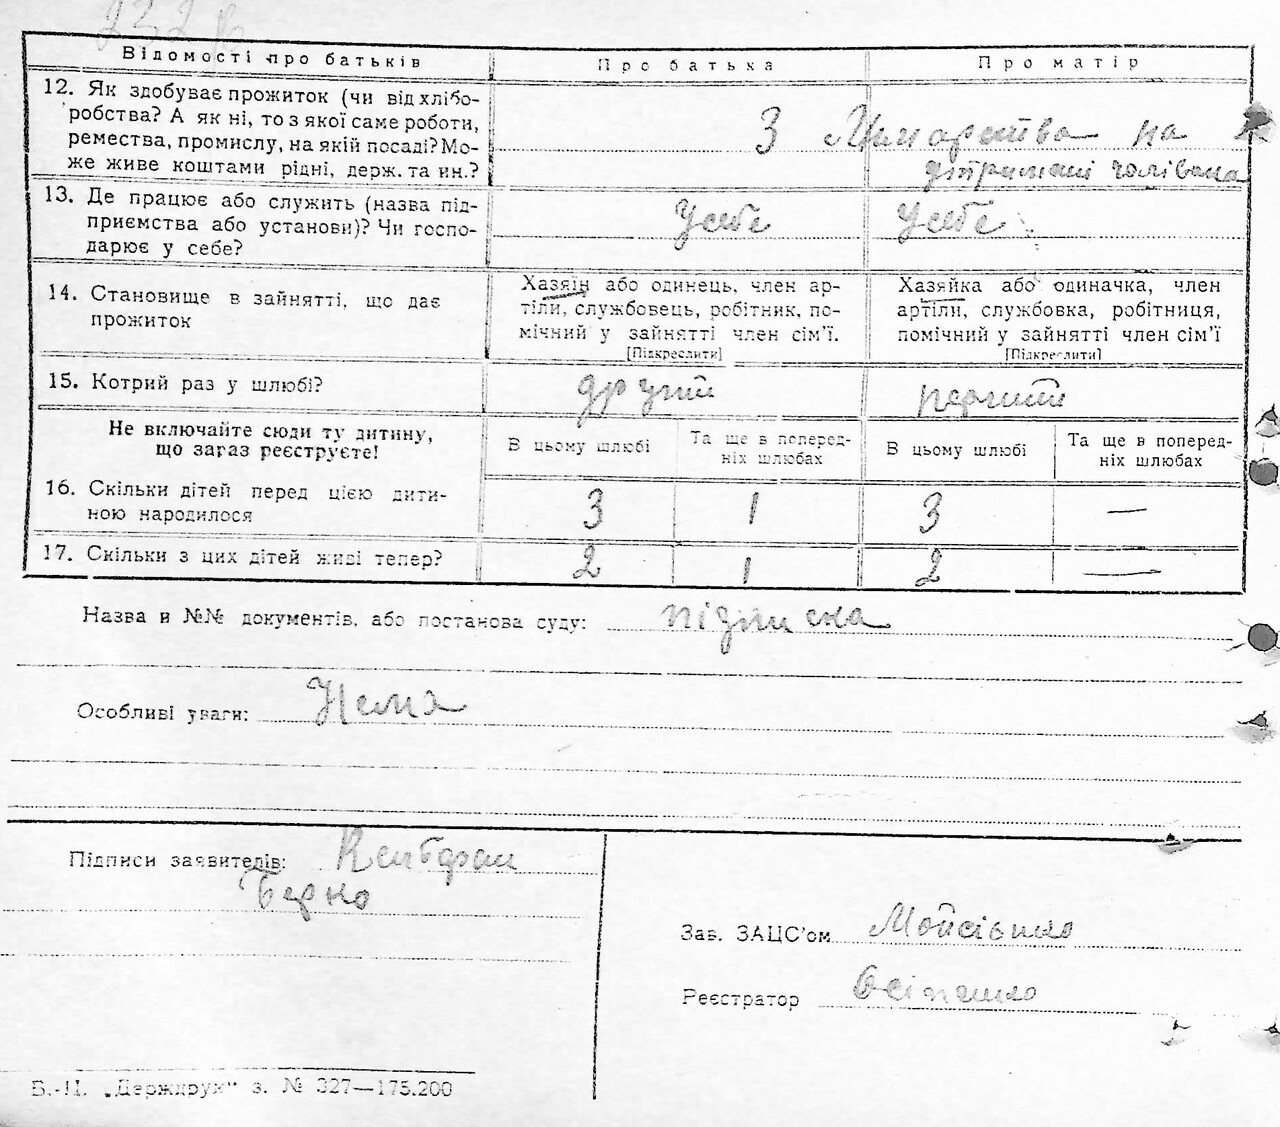 Відомості про батьків Про батька Про матір
12. Як здобуває прожиток (чи від хлібо-
робства? А як ні, то з якої саме роботи,
ремества, промислу, на якій посаді? Мо-
же живе коштами рідні, держ. та ин.?
З Лимарства на
утриманні чоловіка
13. Де працює або служить (назва під-
приємства або установи)? Чи госпо-
дарює у себе?
У себе У себе
14. Становище в зайнятті, що дає
прожиток
Хазяїн або одинець, член ар-
тіли, службовець, робітник, по-
мічний у зайнятті член сім'ї.
[Підкреслити]
Хазяйка або одиначка, член
артіли, службовка, робітниця,
помічний у зайнятті член сім'ї
[Підкреслити]
15. Котрий раз у шлюбі? другий перший
Не включайте сюди ту дитину,
що зараз реєструєте!
В цьому шлюбі
Та ще в поперед-
ніх шлюбах
В цьому шлюбі
Та ще в поперед-
ніх шлюбах
16. Скільки дітей перед цією дити-
ною народилося
3 1 3 —
17. Скільки з цих дітей живі тепер? 2 1 2 —
Назва и №№ документів, або постанова суду: підписка
Особливі уваги: Нема
Підписи заявителів:
Берко
Зав. ЗАЦС'ом
Реєстратор
Б.-Ц. „Держдрук" з. № 327—175.200